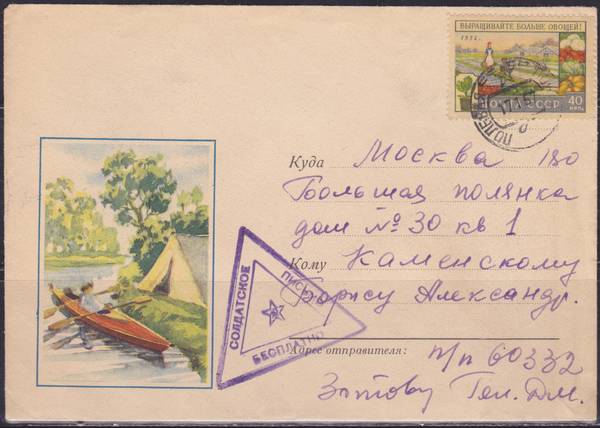 ВЫРАЩИВАЙТЕ БОЛЬШЕ ОВОЩЕЙ!
1956
ПОЧТА СССР
40
КОП.
Куда Москва 180
Большая полянка
дом № 30 кв 1
Кому Каменскому
Борису Александр.
СОЛДАТСКОЕ
ПИСЬМО
БЕСПЛАТНО
Адрес отправителя: п/п 60332
Зотову Ген. Дм.